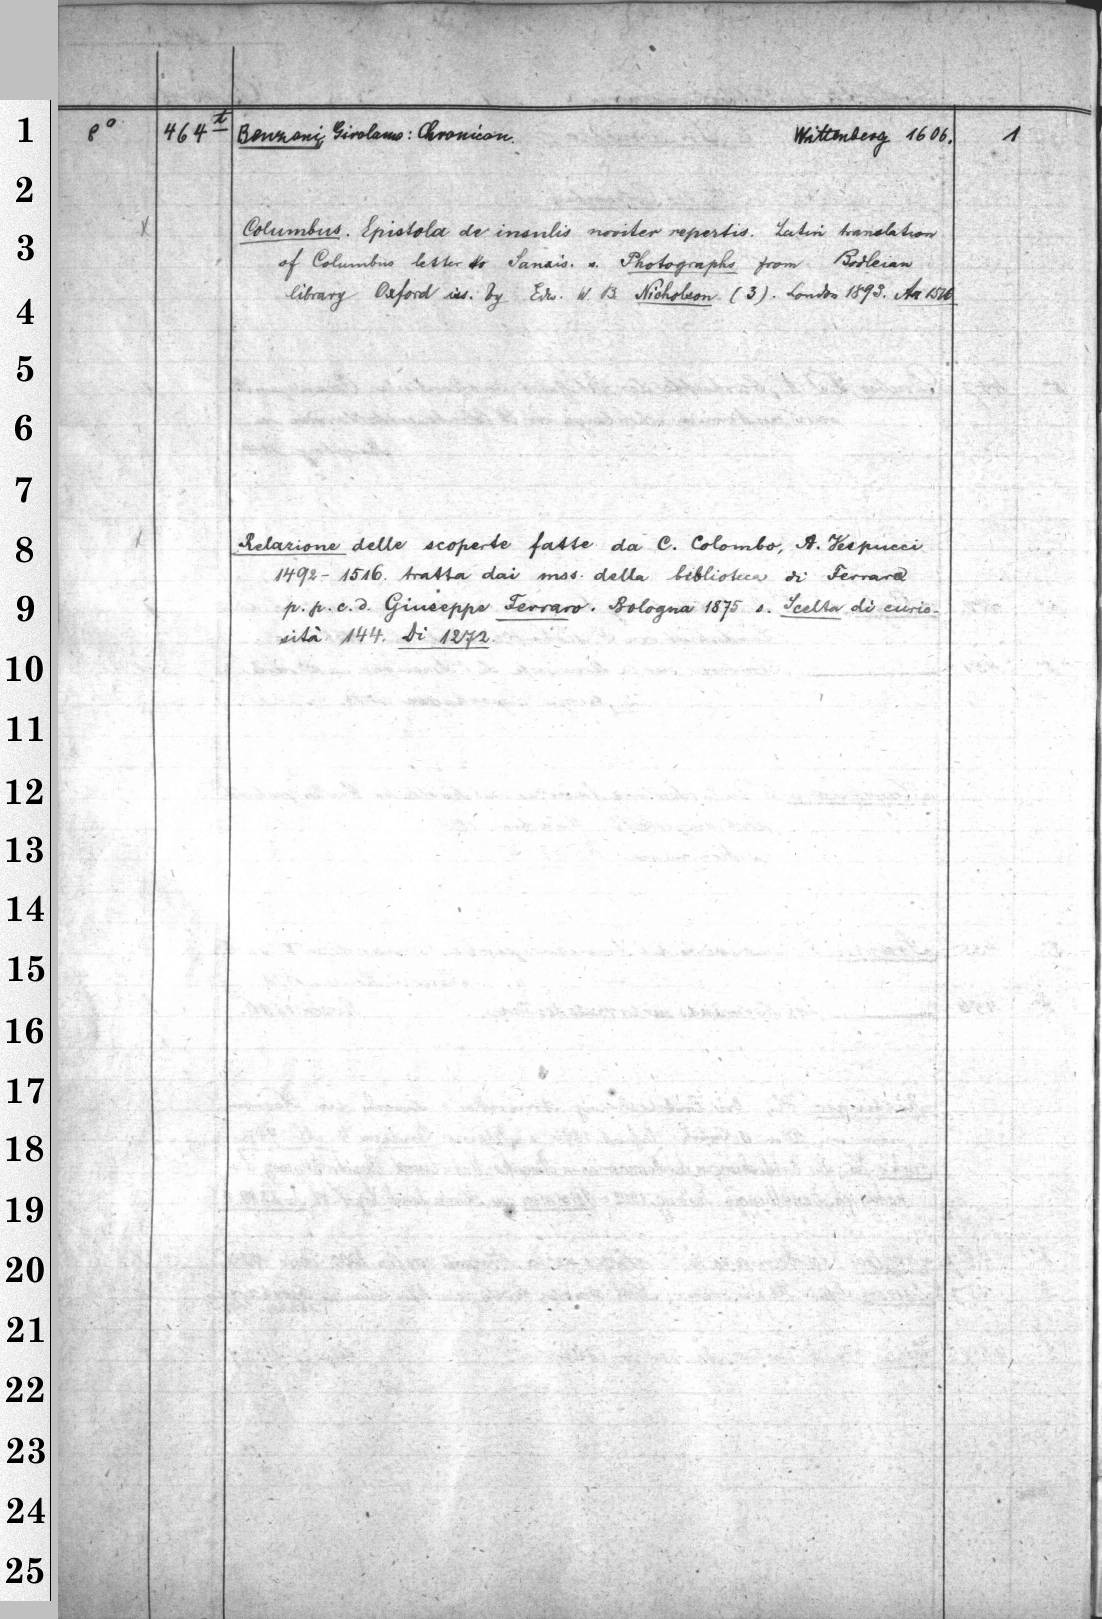 1
8° 464 t Benzoni, Girolamo: Chronicon. Wittenberg 1606. 1
2
Columbus. Epistola de insulis noviter repertis. Latin translation
3
of Columbus letter to Sanxis. s. Photographs from Bodleian
library Oxford iss. by Edw. W. B. Nicholson (3). London 1893.
4
5
6
7
8
Relazione delle scoperte fatte da C. Colombo, A. Vespucci
1492-1516. tratta dai mss. della biblioteca di Ferrara
9
p. p. c. d. Giuseppe Ferraro. Bologna 1875 s. Scelta di curio-
sità 144. Di 1272.
10
11
12
13
14
15
16
17
18
19
20
21
22
23
24
25